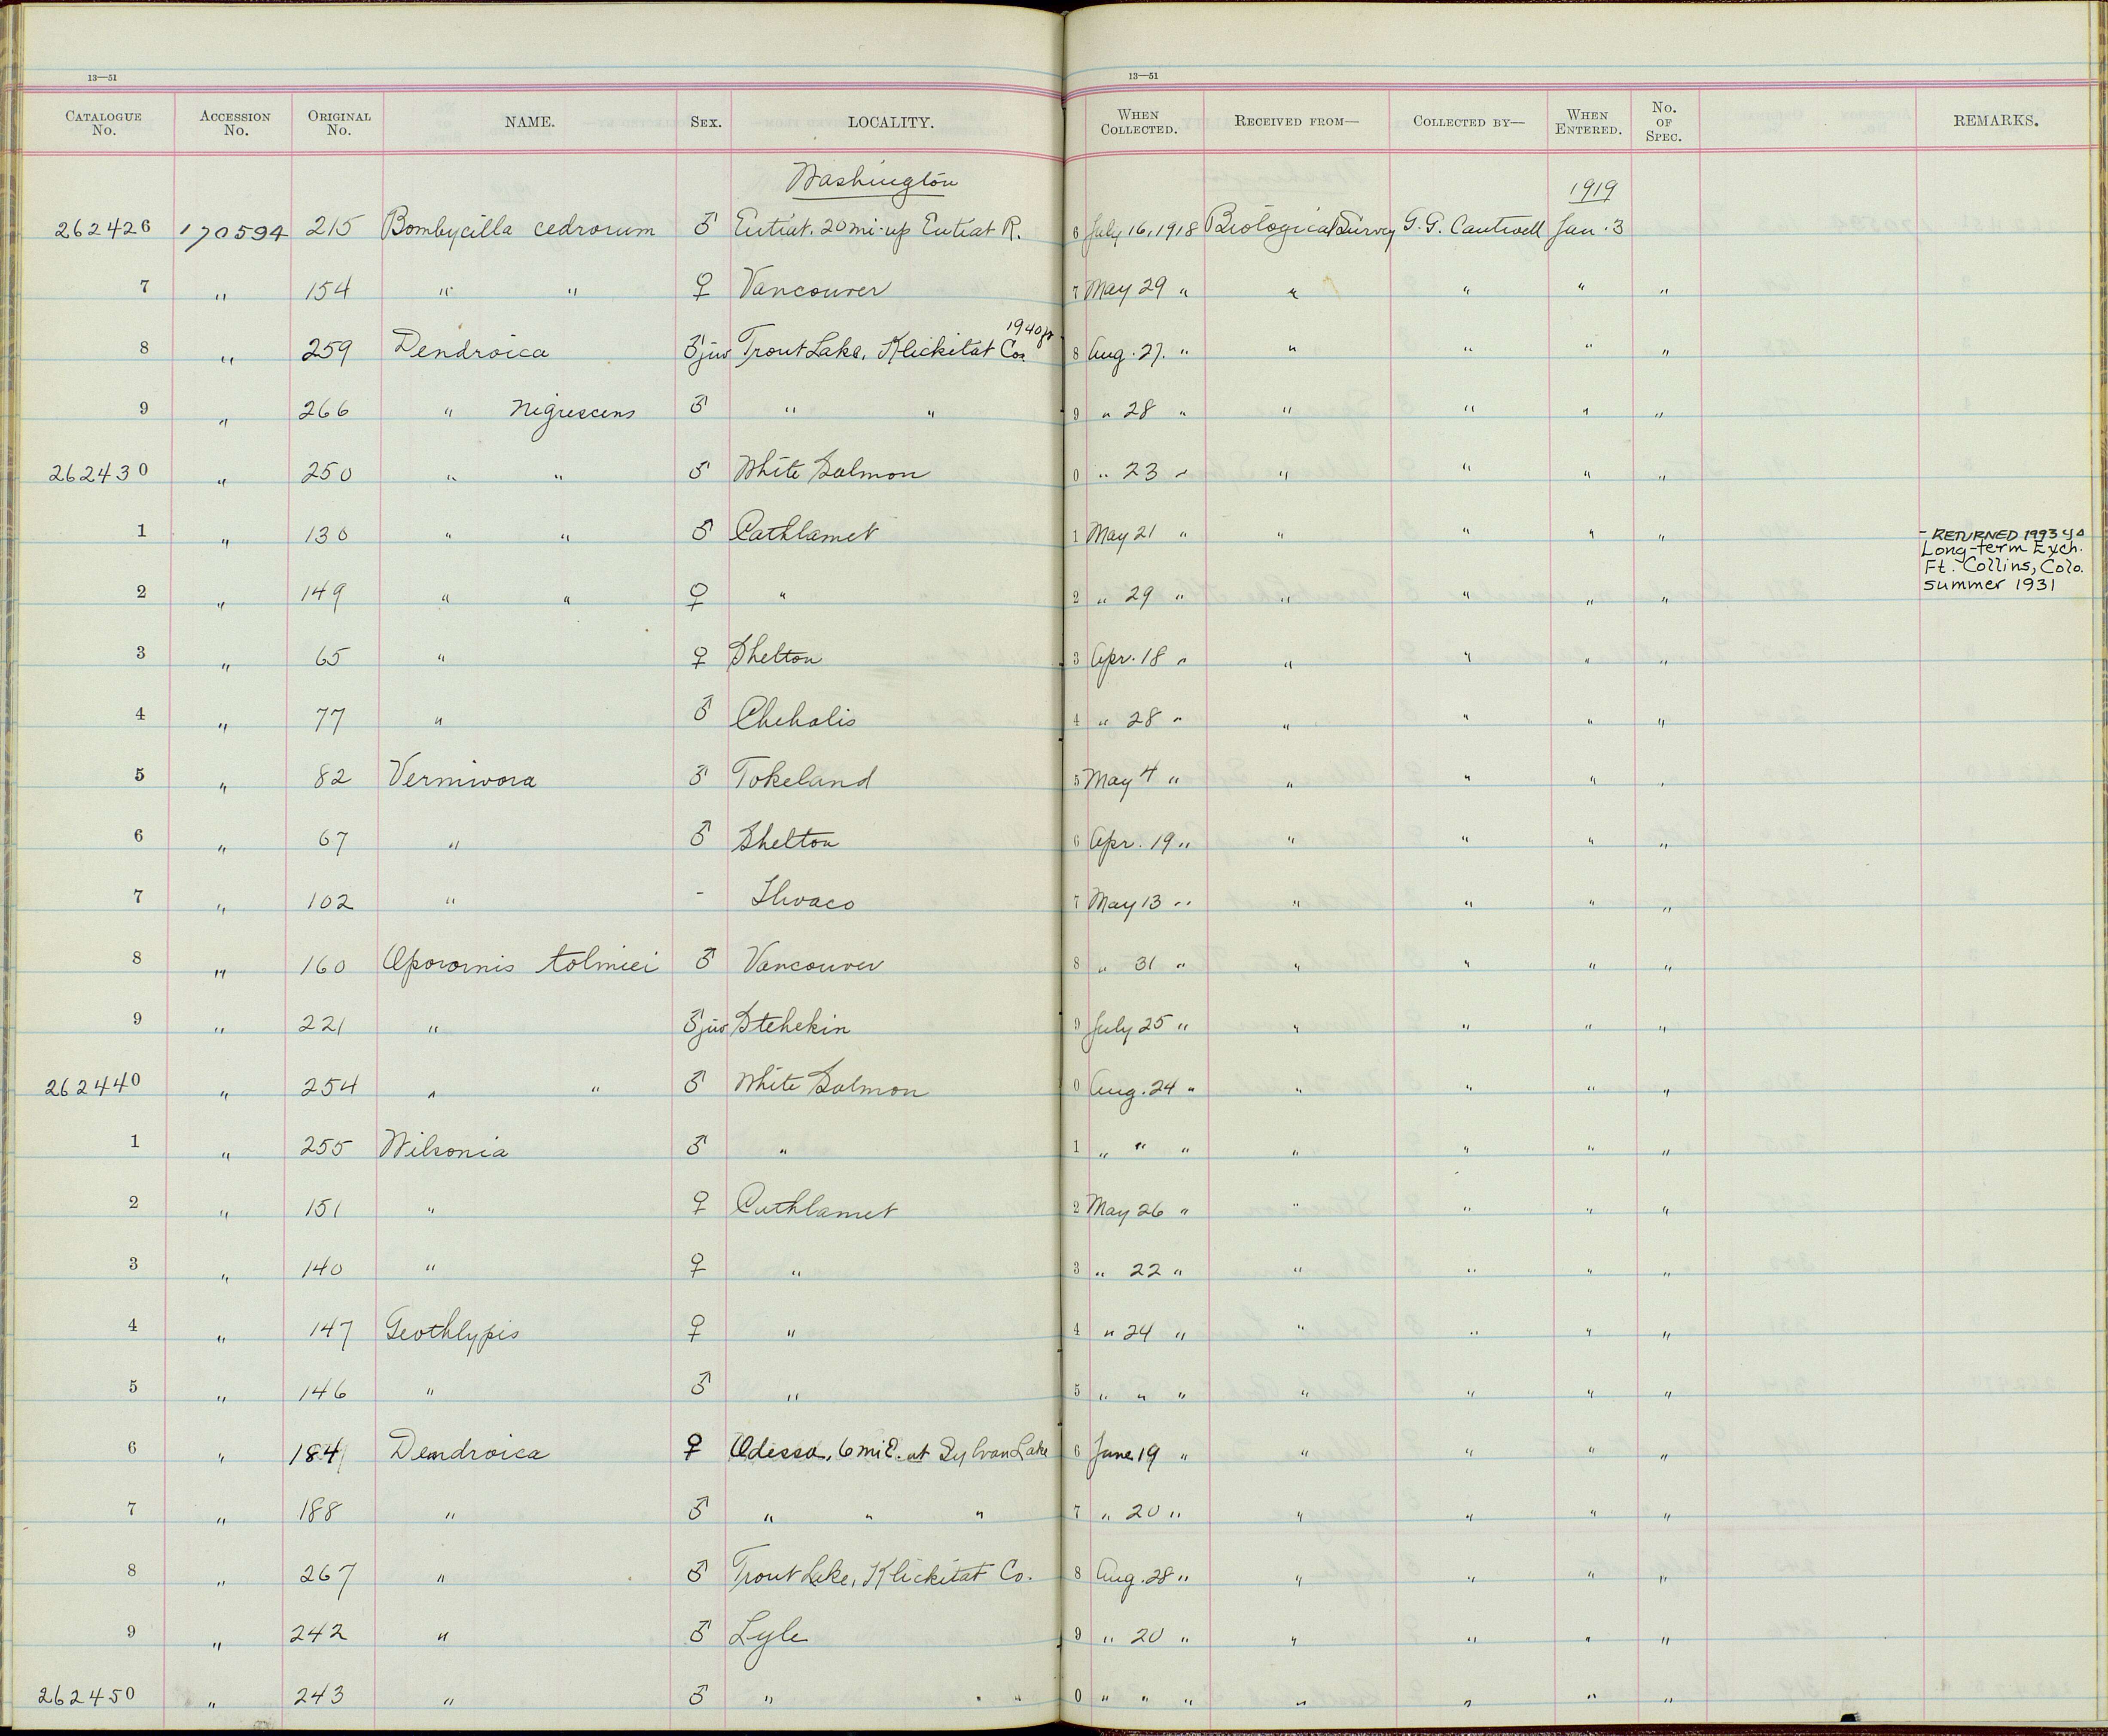 13—51
13—51
CATALOGUE No. ACCESSION No. ORIGINAL No. NAME. SEX. LOCALITY. WHEN COLLECTED. RECEIVED FROM— COLLECTED BY— WHEN ENTERED. No. OF SPEC. REMARKS.
Washington 1919
262426 170594 215 Bombycilla cedrorum ♂ Entiat. 20 mi. up Entiat R. 6 July 16, 1918 Biological Survey G. G. Cantwell Jan. 3
7 " 154 " " ♀ Vancouver 7 May 29 " " " " "
1940 ft
8 " 259 Dendroica ♂ juv Trout Lake, Klickitat Co. 8 Aug. 27. " " " " "
9 " 266 " nigrescens ♂ " " 9 " 28 " " " " "
262430 " 250 " " ♂ White Salmon 0 " 23 " " " " "
1 " 130 " " ♂ Cathlamet 1 May 21 " " " " " - RETURNED 1993
Long-term Exch.
Ft. Collins, Colo.
summer 1931
2 " 149 " " ♀ " 2 " 29 " " " " "
3 " 65 " ♀ Shelton 3 Apr. 18 " " " " "
4 " 77 " ♂ Chehalis 4 " 28 " " " " "
5 " 82 Vermivora ♂ Tokeland 5 May 4 " " " " "
6 " 67 " ♂ Shelton 6 Apr. 19 " " " " "
7 " 102 " - Ilwaco 7 May 13 " " " " "
8 " 160 Oporornis tolmiei ♂ Vancouver 8 " 31 " " " " "
9 " 221 " ♂ juv Stehekin 9 July 25 " " " " "
262440 " 254 " " ♂ White Salmon 0 Aug. 24 " " " " "
1 " 255 Wilsonia ♂ " 1 " " " " " " "
2 " 151 " ♀ Cathlamet 2 May 26 " " " " "
3 " 140 " ♀ " 3 " 22 " " " " "
4 " 147 Geothlypis ♀ " 4 " 24 " " " " "
5 " 146 " ♂ " 5 " " " " " " "
6 " 184 Dendroica ♀ Odessa, 6 mi E. at Sylvan Lake 6 June 19 " " " " "
7 " 188 " ♂ " " " 7 " 20 " " " " "
8 " 267 " ♂ Trout Lake, Klickitat Co. 8 Aug. 28 " " " " "
9 " 242 " ♂ Lyle 9 " 20 " " " " "
262450 " 243 " ♂ " 0 " " " " " " "